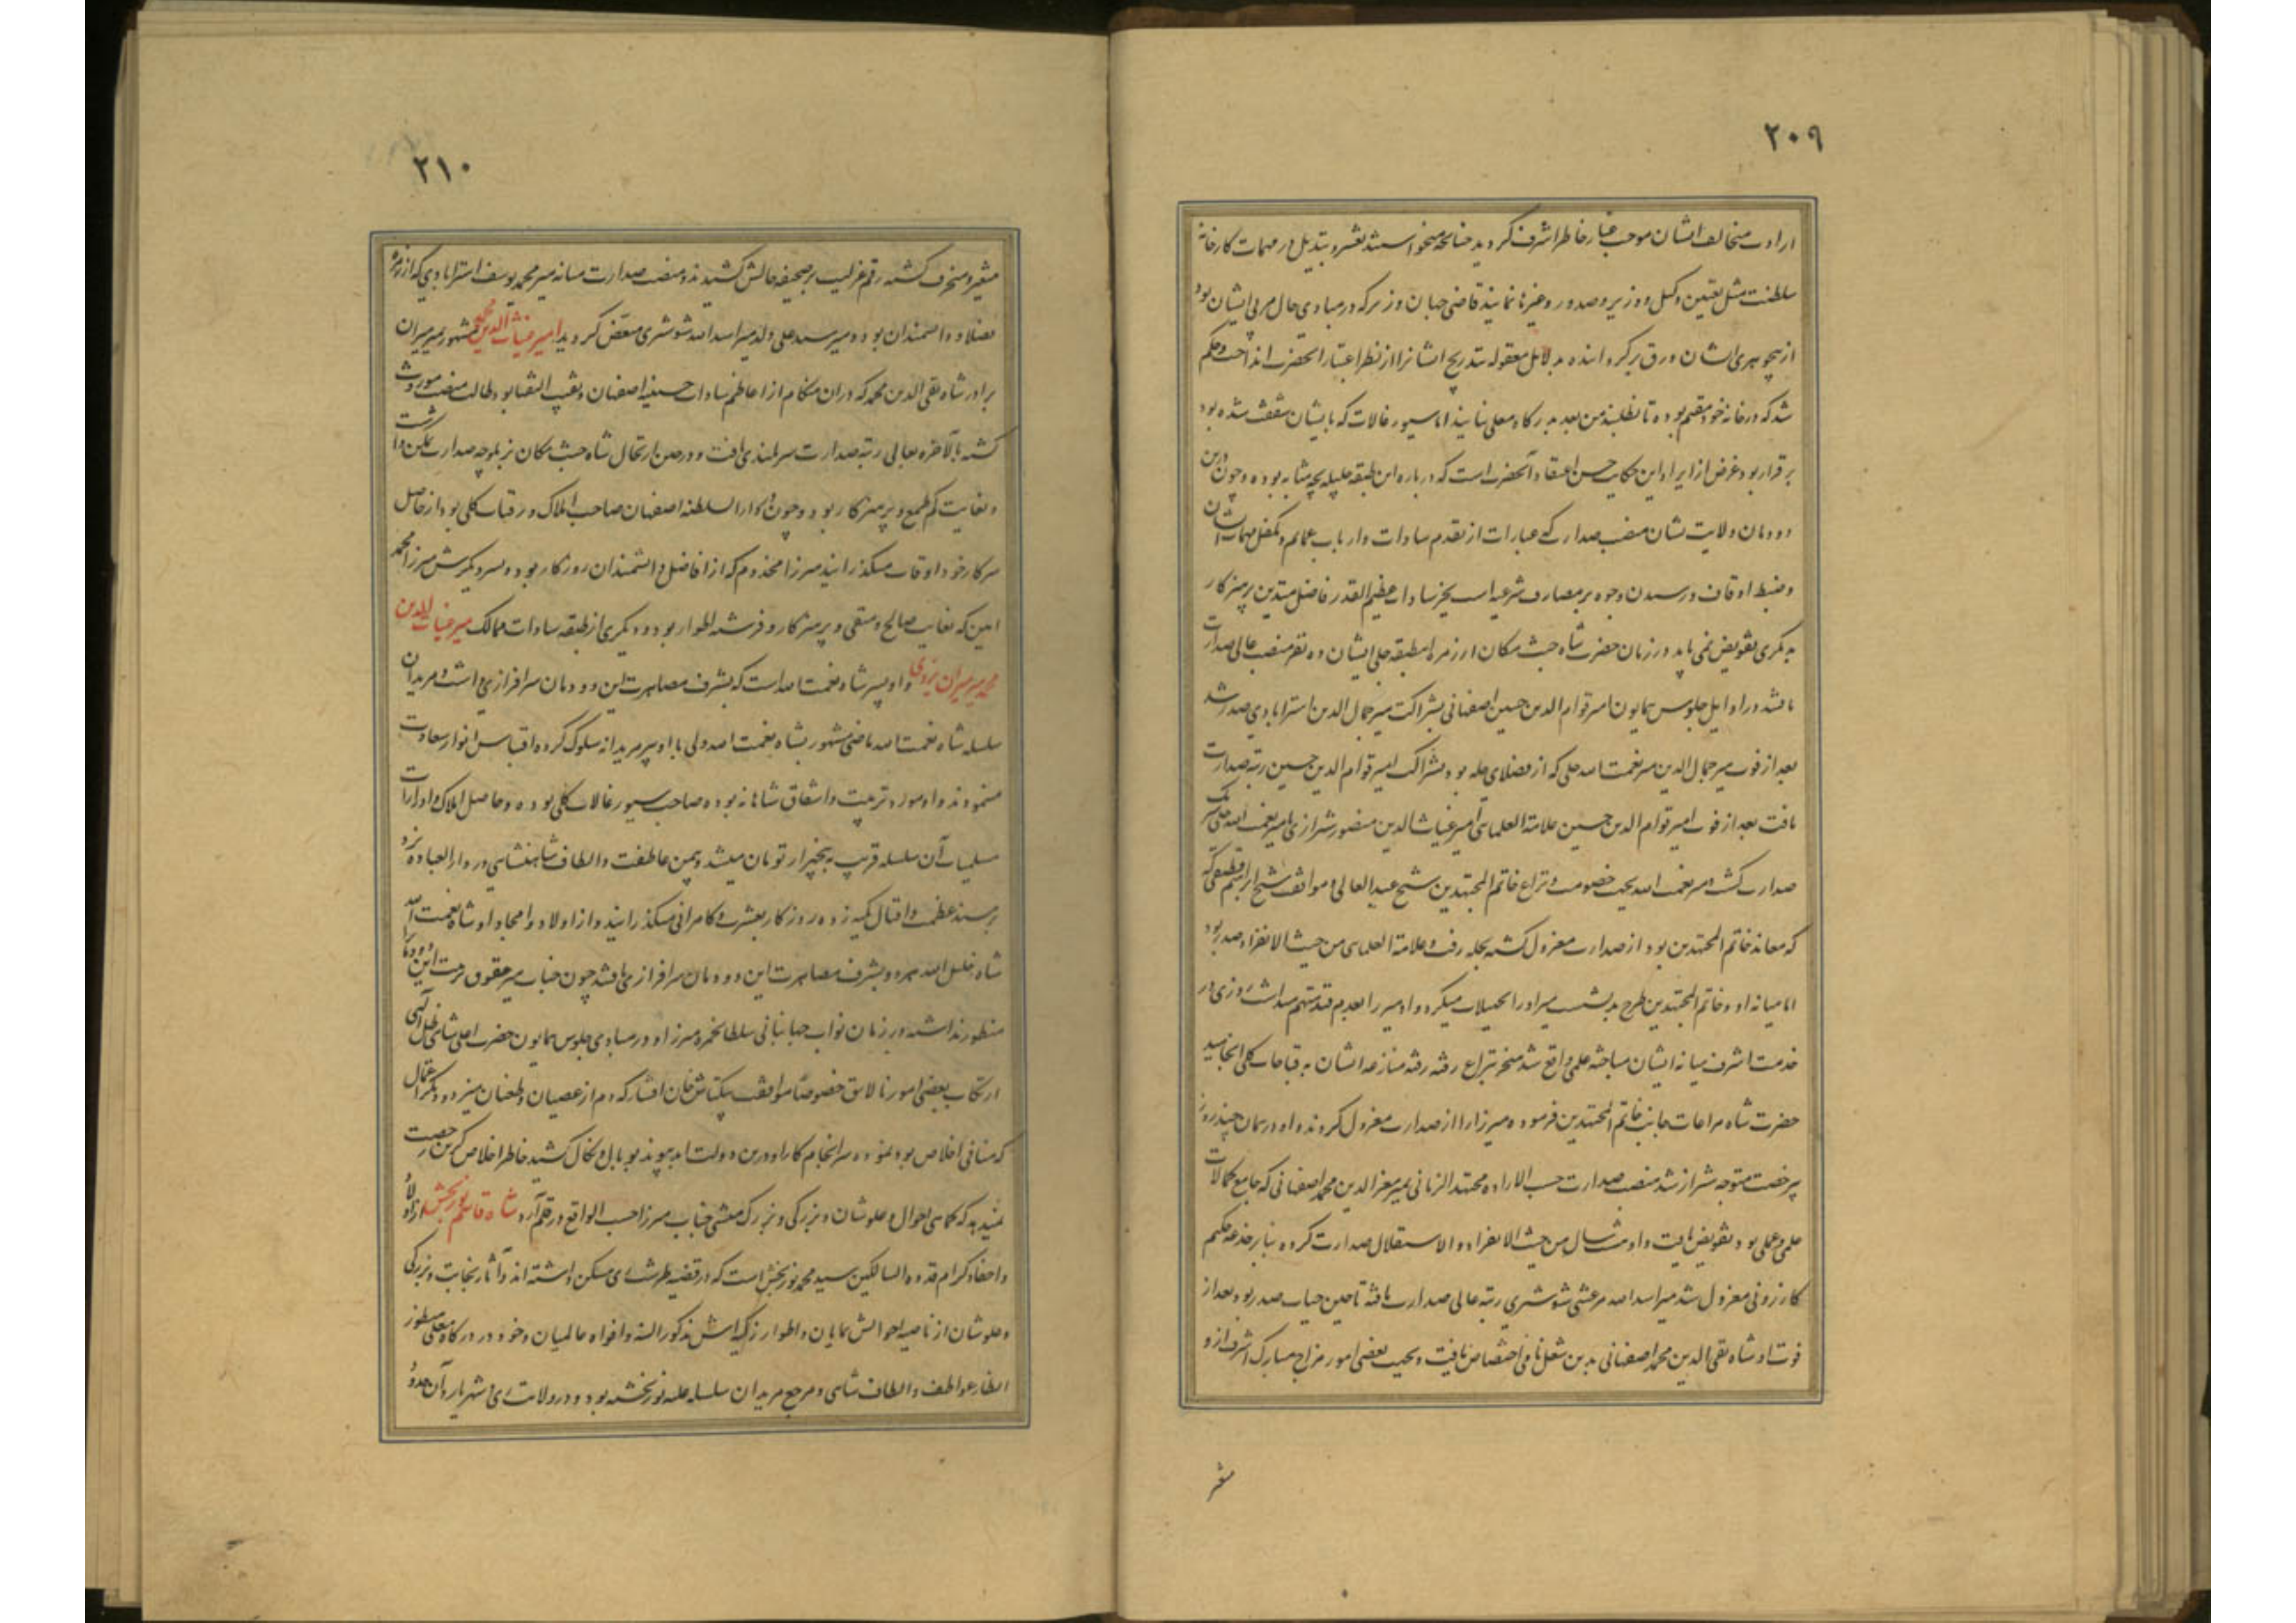 ۲۰۹
ارادت مخالف ایشان موجب غبار خاطر اشرف گردید چنانچه میخواستند بتغییر و تبدیل در مهمات کارخانه
سلطنت مثل تعیین وکیل و وزیر و صدور و غیرها نمایند قاضی جهان وزیر که در مبادی حال مربی ایشان بود
از بیجوهری ایشان ورق برگردانده بدلایل معقوله بتدریج ایشانرا از نظر اعتبار انحضرت انداخت و حکم
شد که در خانه خود مقیم بوده تا نطلبند من بعد بدرگاه معلی نیایند اما سیورغالات که بایشان شفقت شده بود
برقرار بود غرض از ایراد این حکایت حسن اعتقاد آنحضرت است که درباره این طبقه جلیله بچه مثابه بوده و چون درین
دودمان ولایت نشان منصب صدارت که عبارات از تقدم سادات و ارباب عمایم و تکفل مهمات ایشان
و ضبط اوقاف و رسیدن وجوه بر مصارف شرعیه است بجز سادات عظیم القدر فاضل متدین پرهیزکار
بدیگری تفویض نمی یابد در زمان حضرت شاه جنت مکان از زمره این طبقه علی ایشان ده نفر منصب عالی صدارت
یافتند در اوایل جلوس همایون امیر قوام الدین حسین اصفهانی بشراکت میر جمال الدین استرابادی صدر شد
بعد از فوت میر جمال الدین میر نعمت الله حلی که از فضلای حله بود بشراکت امیر قوام الدین حسین رتبه صدارت
یافت بعد از فوت امیر قوام الدین حسین علامة العلمایی امیر غیاث الدین منصور شیرازی با میر نعمت الله حلی شریک
صدارت گشت و میر نعمت الله بجهت خصومت و نزاع خاتم المجتهدین شیخ عبد العالی و موافقت شیخ ابراهیم قطیفی که
که معاند خاتم المجتهدین بود از صدارت معزول گشته بحله رفت و علامة العلمایی من حیث الانفراد صدر بود
اما میانه او و خاتم المجتهدین طرح بد نشست میر او را تجهیلات میکرد و او میر را بعدم قید متهم میداشت روزی در
خدمت اشرف میانه ایشان مباحثه علمی واقع شد منجر بنزاع رفته رفته منازعه ایشان به قباحات کلی انجامید
حضرت شاه مراعات جانب خاتم المجتهدین فرموده میرزا را از صدارت معزول کردند و او در همان چند روز
برخصت متوجه شیراز شد منصب صدارت حسب الاراده مجتهد الزمانی بمیر معز الدین محمد اصفهانی که جامع کمالات
علمی و عملی بود تفویض یافت و او هشت سال من حیث الانفراد و الاستقلال صدارت کرده بنابر خدعه حکیم
کازرونی معزول شد میر اسد الله مرعشی شوشتری رتبه عالی صدارت یافته تا حین حیات صدر بود بعد از
فوت او شاه تقی الدین محمد اصفهانی بدین شغل نامی اختصاص یافت و بجهت بعضی امور مزاج مبارک اشرف از و
متغیر
۲۱۰
متغیر و منحرف گشته رقم عزلت بر صحیفه حالش کشیدند و منصب صدارت میانه میر محمد یوسف استرابادی که از زمره
فضلا و دانشمندان بود و میر سید علی ولد میر اسد الله شوشتری مفوض گردید امیر غیاث الدین محمد مشهور بمیر میران
برادر شاه تقی الدین محمد که دران هنگام از اعاظم سادات حسینیه اصفهان و نقیب النقبا بود طالب منصب موروث
گشته بالاخره بعالی رتبه صدارت سربلندی یافت و در حین ارتحال شاه جنت مکان نیز بلوچه صدارت تمکین داشت
و بغایت کم طمع و پرهیزکار بود و چون در دار السلطنه اصفهان صاحب املاک و رقبات کلی بود از حاصل
سرکار خود اوقات میگذرانید میرزا مخدوم که از افاضل و دانشمندان روزگار بوده و پسر دیگرش میرزا محمد
امین که بغایت صالح و متقی و پرهیزکار و فرشته اطوار بود و دیگری از طبقه سادات ممالک میر غیاث الدین
محمد میر میران یزدی و او پسر شاه نعمت الله است که بشرف مصاهرت این دودمان سرافرازی داشت و مریدان
سلسله شاه نعمت الله ماضی مشهور بشاه نعمت الله ولی با او پیر مریدانه سلوک کرده اقتباس انوار سعادت
مینمودند و او مورد تربیت و اشفاق شاهانه بوده صاحب سیورغالات کلی بوده و حاصل املاک و ادارات
مسلمیات آن سلسله قریب به پنجهزار تومان میشد و بیمن عاطفت و الطاف شاهنشاهی در دار العباده یزد
بر مسند عظمت و اقبال تکیه زده روزگار بعشرت و کامرانی میگذرانید و از اولاد و امجاد او شاه نعمت الله
شاه خلیل الله هر دو بشرف مصاهرت این دودمان سرافرازی یافتند چون جناب میر حقوق تربیت این دودمان را
منظور نداشته در زمان نواب جهانبانی سلطان حمزه میرزا و در مبادی جلوس همایون حضرت اعلی شاهی ظل الهی
ارتکاب بعضی امور نالایق خصوصا موافقت بیکتاش خان افشار که دم از عصیان و طغیان میزد و دیگر اعمال
که منافی اخلاص بود نموده سرانجام کار او درین دولت ابد پیوند بوبال و نکال کشید خاطر اخلاص گزین رخصت
نمیدهد که کماهی احوال و علو شان و بزرگی و بزرگ منشی جناب میرزا حسب الواقع در قلم آرد شاه قاسم نوربخش از اولاد
و احفاد کرام قدوه السالکین سید محمد نوربخش است که در قصبه طرشت ری مسکن داشته اند و آثار نجابت و بزرگی
و علو شان از ناصیه احوالش نمایان و اطوار زکیه اش مذکور السنه و افواه عالمیان و خود در درگاه معلی منظور
انظار عواطف و الطاف شاهی و مرجع مریدان سلسله علیه نوربخشیه بود و در ولایت ری و شهریار و آن حدود